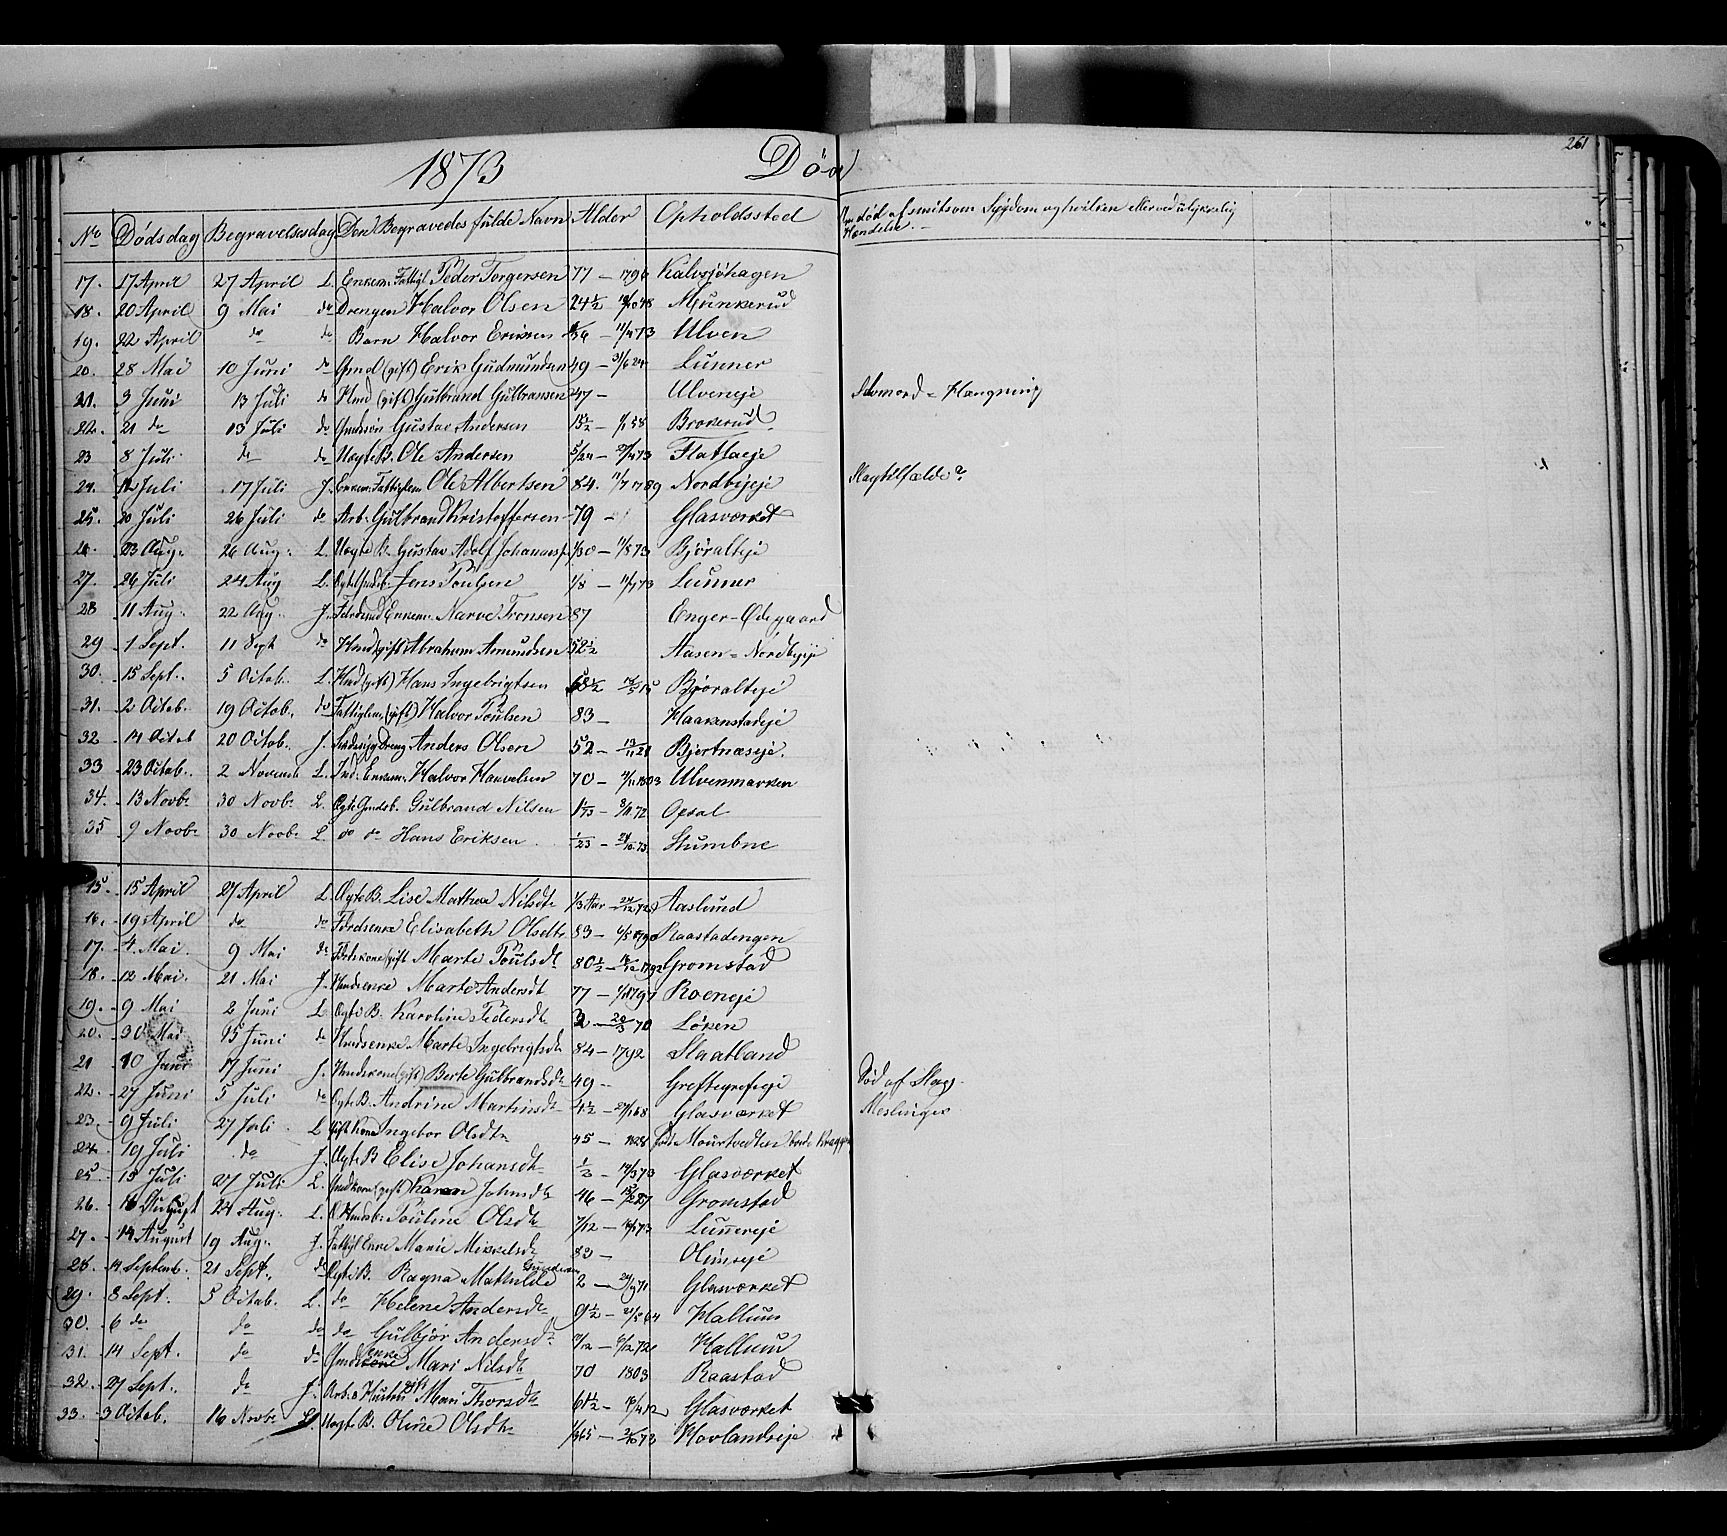 261
1873 Død
No Dødsdag Begravelsesdag Den Begravedes fulde Navn Alder Opholdssted Om død af smitsom Sygdom og hvilken eller ved ulykkelig
Hændelse.
17. 17 April 27 April L. Enkem. Fattigl. Peder Torgersen 77 – 1796 Kalvsjøhagen
18. 20 April 9 Mai do Drengen Halvor Olsen 24½ Munkerud
19. 22 April do do Barn Halvor Eriksen 11/4 73 Ulven
20. 28 Mai 10 Juni do Gmd (gift) Erik Gudmundsen 49 – 31/6 24 Lunner
21. 3 Juni 13 Juli do Hmd (gift) Gulbrand Gulbransen 47 – Ulveneje Selvmord = Hængning
22. 21 do 13 Juli do Gmdssøn Gustav Andersen 15½ – 1/1 58 Brokerud
23 8 Juli do do Uægte B. Ole Andersen 5/24 – 27/4 73 Flattaeje
24. 12 Juli 17 Juli J. Enkem. Fattiglem Ole Albertsen 84. 11/7 1789 Nordbyeje Slagtilfælde?
25. 20 Juli 26 Juli do Arb. Gulbrand Kristoffersen 79 – Glasværket
23 Aug. 26 Aug. L. Uægte B. Gustav Adolf Johannesen 1/30 – 11/8 73 Bjøralteje
27. 26 Juli 24 Aug L. Ægte Gmdsb. Jens Poulsen 1/8 – 11/7 73 Lunner
28 11 Aug. 22 Aug. J. Enkem. Narve Tronsen 87 Enger-Ødegaard
29 1 Sept. 11 Sept do Hmd (gift) Abraham Amundsen 52½ Aasen = Nordbyeje
30. 15 Sept. 5 Octob. L. Hmd (gift) Hans Ingebrigtsen 58½ Bjøralteje
31. 2 Octob. 19 Octob. do Fattiglem (gift) Halvor Poulsen 83 – Haakenstadeje
32 14 Octob 20 Octob. J. Dreng Anders Olsen 52 – 13/11 21 Bjertnæseje.
33 23 Octob. 2 Novemb L. Ind. Enkem. Halvor Halvorsen 70 – 1803 Ulvenmarken
34. 13 Novbr 30 Novbr L. Ægte Gmdsb. Gulbrand Nilsen – 3/11 72 Opsal
35 9 Novbr 30 Novbr L. do do Hans Eriksen 1/23 – 24/10 73 Stumbne
15. 15 April 27 April L. Ægte B. Lise Mathea Nilsdtr 1/3 Aar – 24/12 72 Aaslund
16. 19 April do do Elisabeth Olsdtr 83 – Raastadengen
17. 4. Mai. 9 Mai do (gift) Marte Poulsdtr 80½ – 16/12 1792 Gromstad
18. 12 Mai. 21 Mai J. Hmdsenke Marte Andersdtr 77 – Roeneje
19. 9 Mai 2 Juni L. Ægte B. Karoline Pedersdtr 3 – 20/3 70 Løken
20. 30 Mai 15 Juni do Hmdsenke Marte Ingebrigtsdtr 84 – 1792 Slaatland
21 10 Juni 17 Juni J. Hmdskone (gift) Berte Gulbrandsdtr 49 – Greftegrefseje Død af Slag
22. 27 Juni 5 Juli do Ægte B. Andrine Martinsdtr 4½ – 68 Glasværket Meslinger
23. 9 Juli 27 Juli. L gift Kone Ingebor Olsdtr 45 – 1828
24. 19 Juli do J. Ægte B Elise Johansdtr 1/3 – 14/3 73 Glasværket
25 15 Juli 27 Juli L. Gmdkone (gift) Karen Johnsdtr 46 – Gromstad
26. 16 August 24 Aug. L. Pouline Olsdtr 7/12 – 73 Lunnereje
27. 14 August 19 Aug. J. Fattigl Enke Marie Mikkelsdtr 83 – Olimseje
28. 14 Septemb. 21 Sept. do Ægte B. Ragna Mathilde 2 – 24/9 71 Glasværket
29. 8 Sept. 5 Octob. L. do Helene Andersdtr 9½ – 21/2 64 Hallum
30. 6 do do do do Gulbjør Andersdtr Hallum
31. 14 Sept. do do Gmdsenke Mari Nilsdtr 70 1803 Raastad
32. 27 Sept. do J. Arb.s Hustru gift Mari Thorsdtr 61½ – 19/4 12 Glasværket
33. 3 Octob. 16 Novbr L. Uægte B. Oline Olsdtr 1/365 – 2/10 73 Hovlandseje